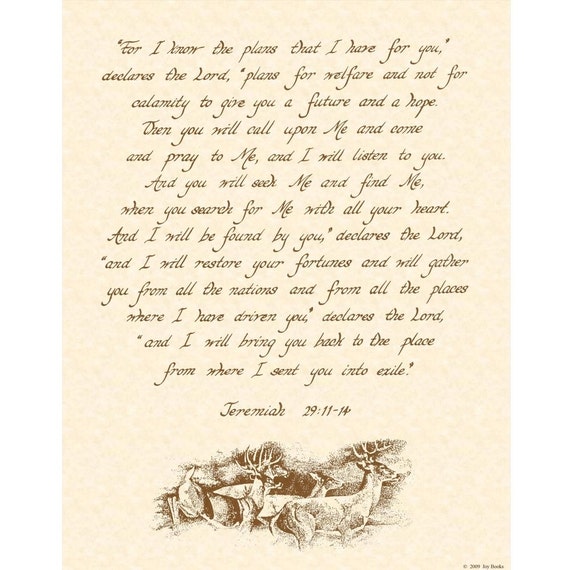 "For I know the plans that I have for you,"
declares the Lord, "plans for welfare and not for
calamity to give you a future and a hope.
Then you will call upon Me and come
and pray to Me, and I will listen to you.
And you will seek Me and find Me,
when you search for Me with all your heart.
And I will be found by you," declares the Lord,
"and I will restore your fortunes and will gather
you from all the nations and from all the places
where I have driven you," declares the Lord,
"and I will bring you back to the place
from where I sent you into exile."
Jeremiah 29:11-14
© 2009 Joy Books